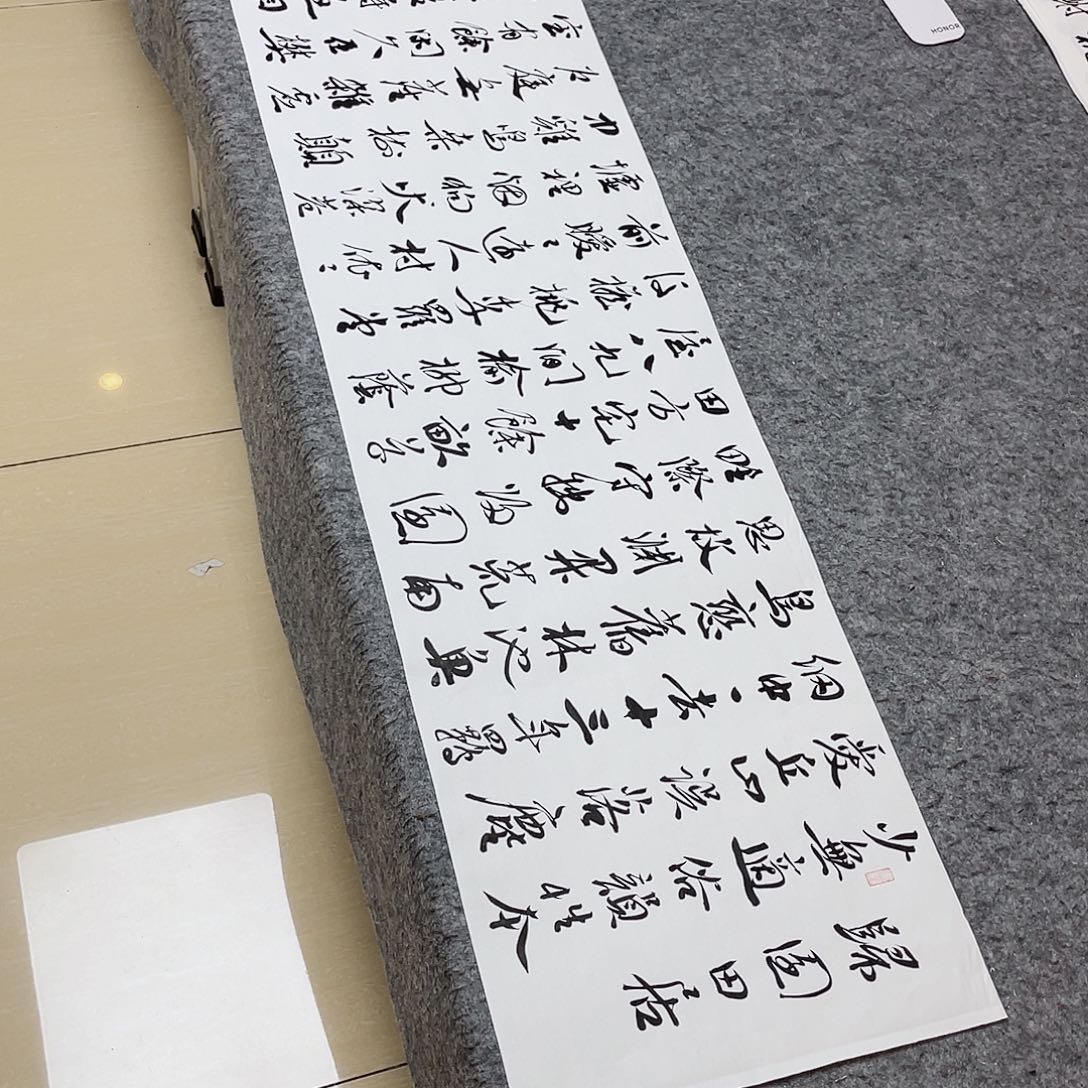 歸園田居
少無適俗韻性本
愛丘山誤落塵
網中一去十三年羈
鳥戀舊林池魚
思故淵開荒南
野際守拙歸園
田方宅十餘畝草
屋八九間榆柳蔭
後檐桃李羅堂
前曖々遠人村依々
墟裡烟狗吠深巷
中雞鳴桑樹顛
戶庭無塵雜虛
室有餘閑久在樊
自
HONOR